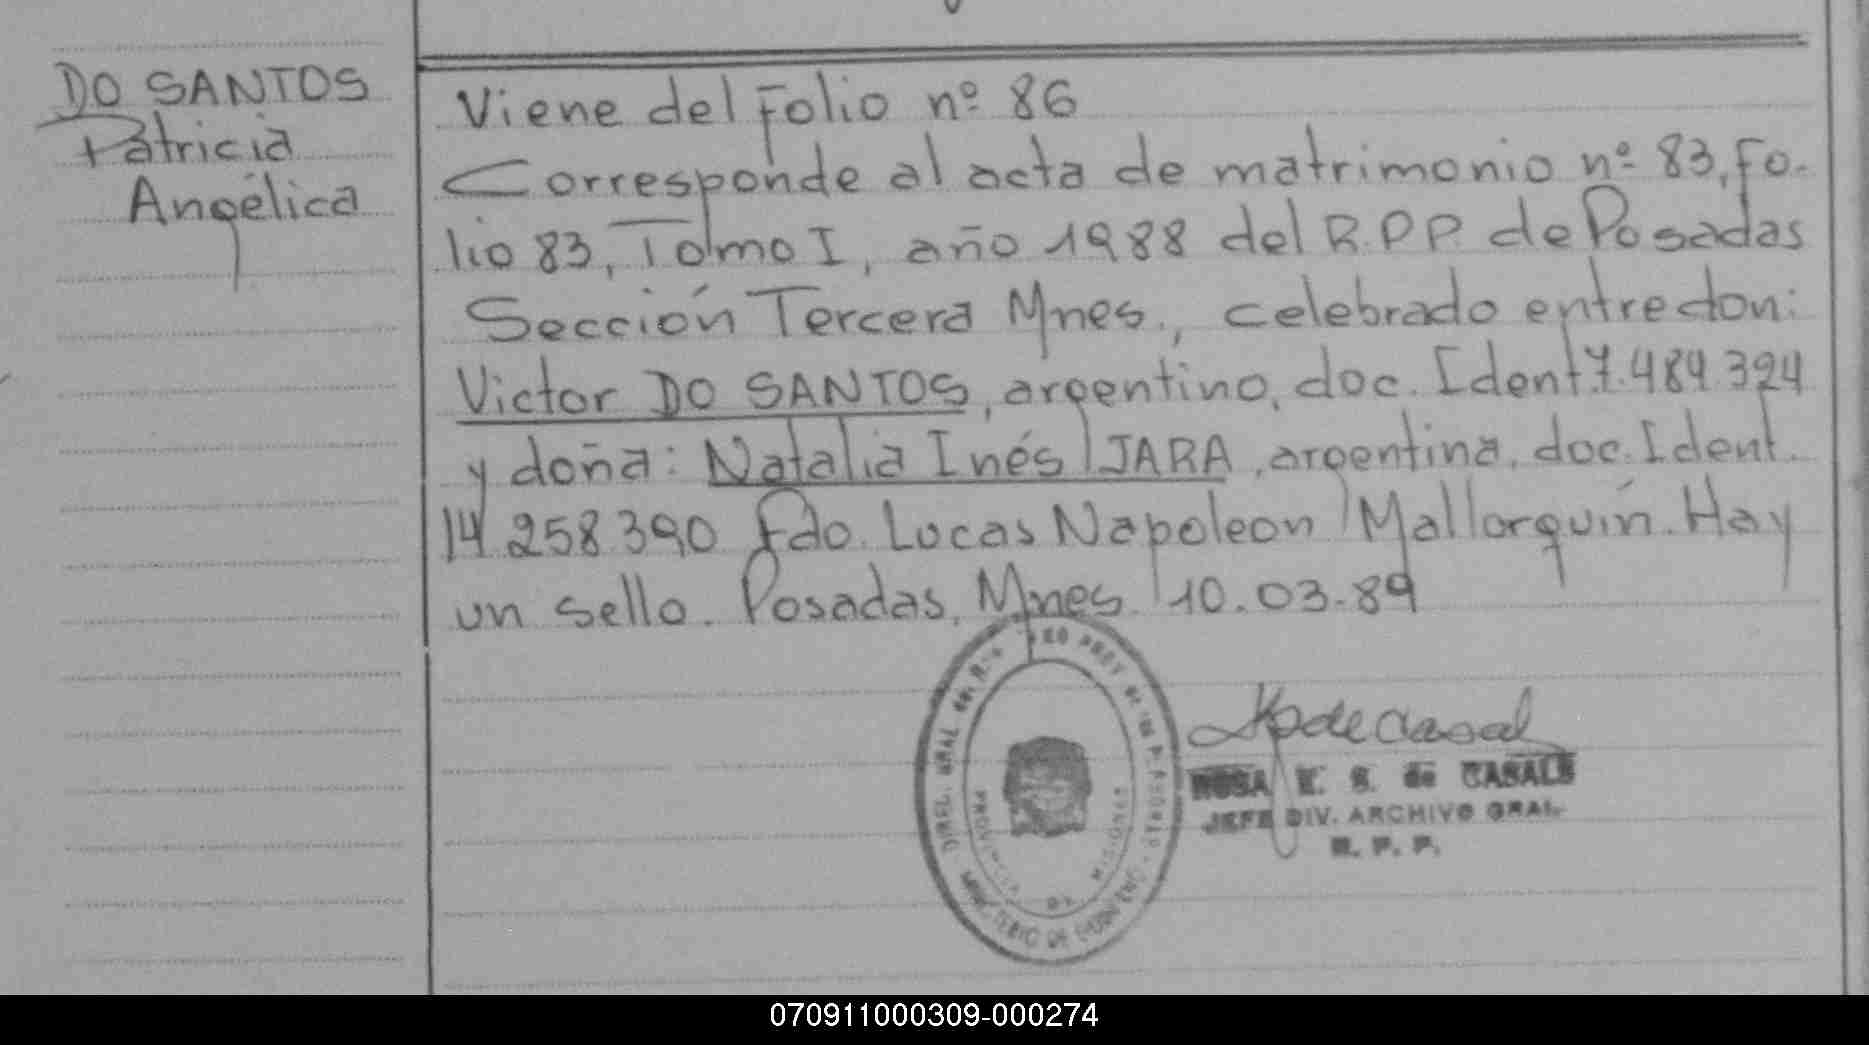 DO SANTOS
Patricia
Angélica
Viene del Folio nº 86
Corresponde al acta de matrimonio nº 83, Fo-
lio 83, Tomo I, año 1988 del R.P.P. de Posadas
Sección Tercera Mnes., celebrado entre don:
Victor DO SANTOS, argentino, doc. Ident 7.484.394
y doña: Natalia Inés JARA, argentina, doc. Ident.
14.258.390 Fdo. Lucas Napoleon Mallorquín. Hay
un sello. Posadas, Mnes. 10.03.89
DIREC. GRAL del R
PROV de las P.
MINISTERIO DE GOBIERNO
PROVINCIA DE MISIONES
ROSA E. S. de CASALS
JEFE DIV. ARCHIVO GRAL.
R. P. P.
070911000309-000274